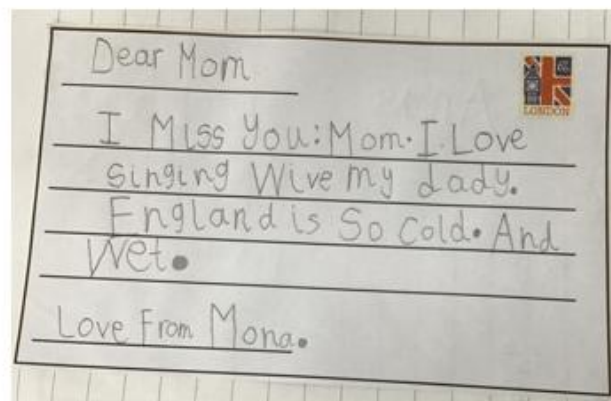 Dear Mom
LONDON
I Miss You: Mom. I Love
singing Wive my dady.
England is So Cold. And
Wet.
Love From Mona.